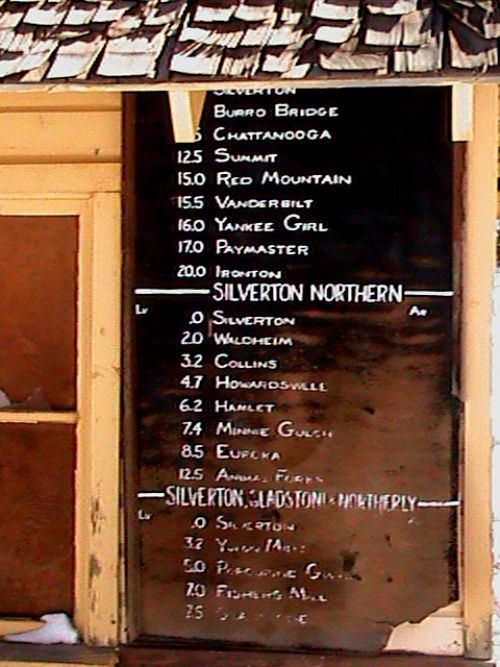 SILVERTON
BURRO BRIDGE
5 CHATTANOOGA
12.5 SUMMIT
15.0 RED MOUNTAIN
15.5 VANDERBILT
16.0 YANKEE GIRL
17.0 PAYMASTER
20.0 IRONTON
SILVERTON NORTHERN
Lv Ar
.0 SILVERTON
2.0 WALDHEIM
3.2 COLLINS
4.7 HOWARDSVILLE
6.2 HAMLET
7.4 MINNIE GULCH
8.5 EUREKA
12.5 ANIMAS FORKS
SILVERTON, GLADSTONE & NORTHERLY
Lv
.0 SILVERTON
3.2
5.0 PORCUPINE GULCH
7.0 FISHERS MILL
7.5 GLADSTONE